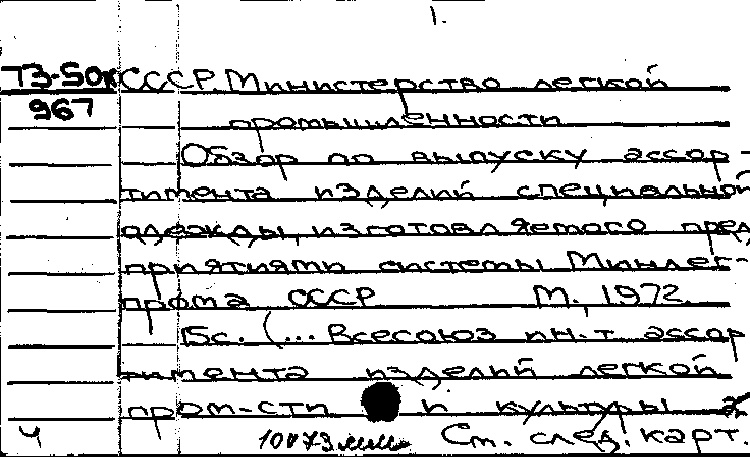 1.
73-50к СССР. Министерство легкой
967
промышленности
Обзор по выпуску ассор-
тимента изделий специальной
одежды, изготовляемого пред
приятиями системы Минлег-
прома СССР М., 1972.
15с. (... Всесоюз ин-т ассор
тимента изделий легкой
пром-сти и культуры
4 См. след. карт.